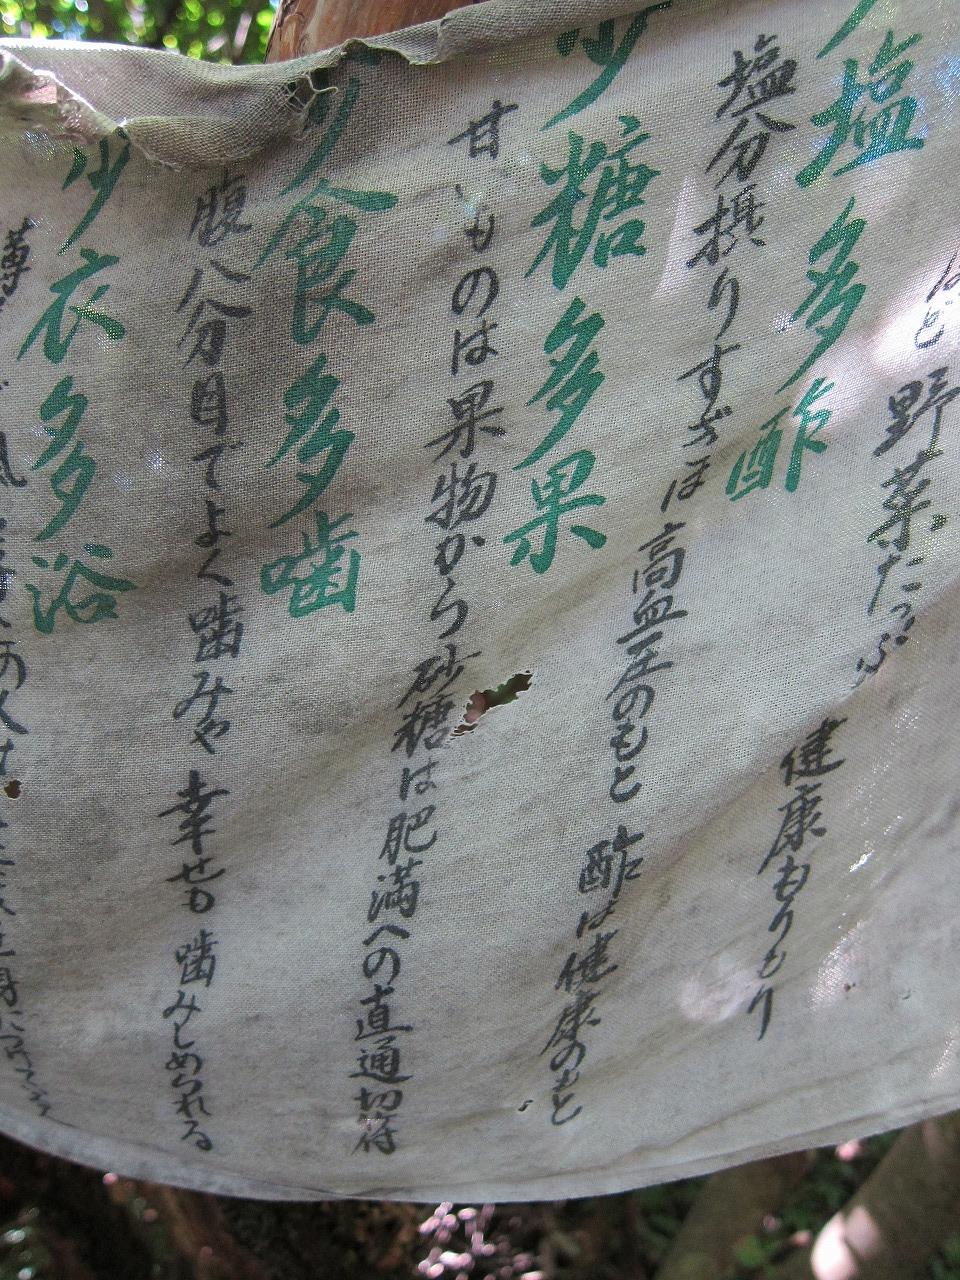 ほど 野菜たっぷり 健康もりもり
少塩多酢
塩分摂りすぎは 高血圧のもと 酢は健康のもと
少糖多果
甘いものは果物から 砂糖は肥満への直通切符
少食多噛
腹八分目でよく噛みや 幸せも 噛みしめられる
少衣多浴